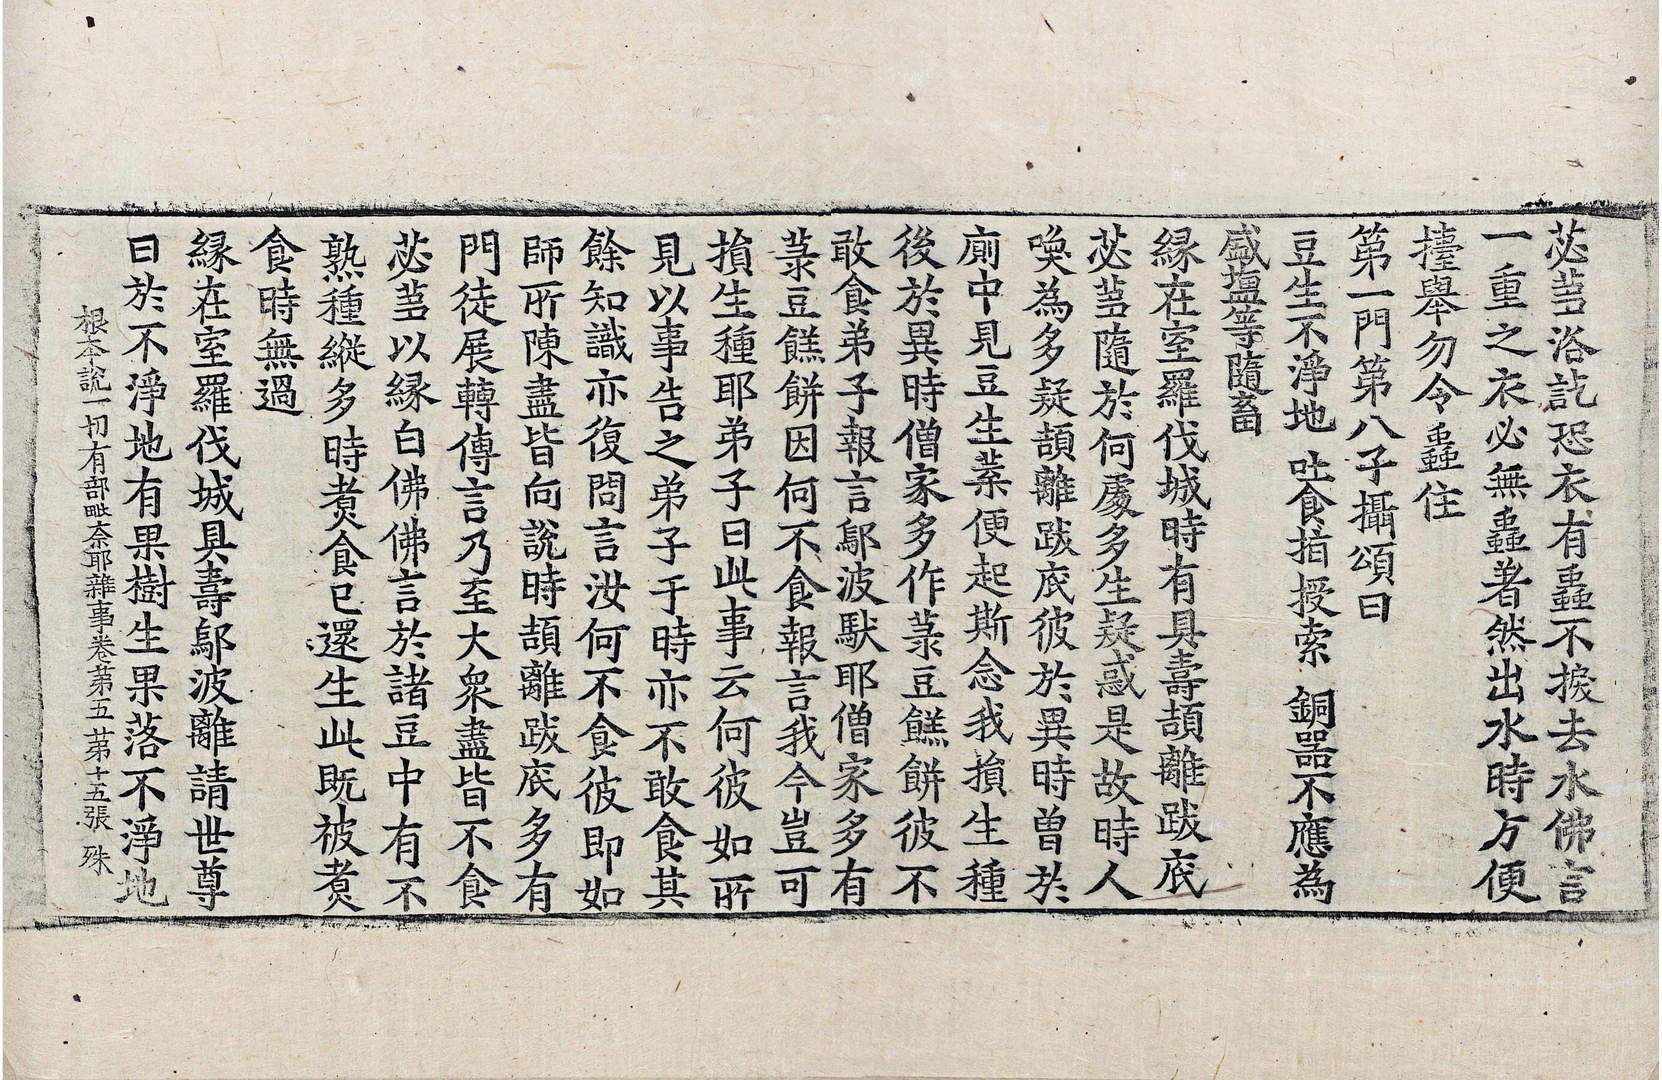 苾芻浴訖恐衣有蟲不捩去水佛言
一重之衣必無蟲著然出水時方便
擡舉勿令蟲住
第一門第八子攝頌曰
豆生不淨地 吐食指授索 銅器不應為
盛塩等隨畜
緣在室羅伐城時有具壽頡離跋底
苾芻隨於何處多生疑惑是故時人
喚為多疑頡離跋底彼於異時曾於
廁中見豆生葉便起斯念我損生種
後於異時僧家多作菉豆餻餅彼不
敢食弟子報言鄔波馱耶僧家多有
菉豆餻餅因何不食報言我今豈可
損生種耶弟子曰此事云何彼如所
見以事告之弟子于時亦不敢食其
餘知識亦復問言汝何不食彼即如
師所陳盡皆向說時頡離跋底多有
門徒展轉傳言乃至大衆盡皆不食
苾芻以緣白佛佛言於諸豆中有不
熟種縱多時煑食已還生此既被煑
食時無過
緣在室羅伐城具壽鄔波離請世尊
曰於不淨地有果樹生果落不淨地
根本說一切有部毗奈耶雜事卷第五 第十五張 殊